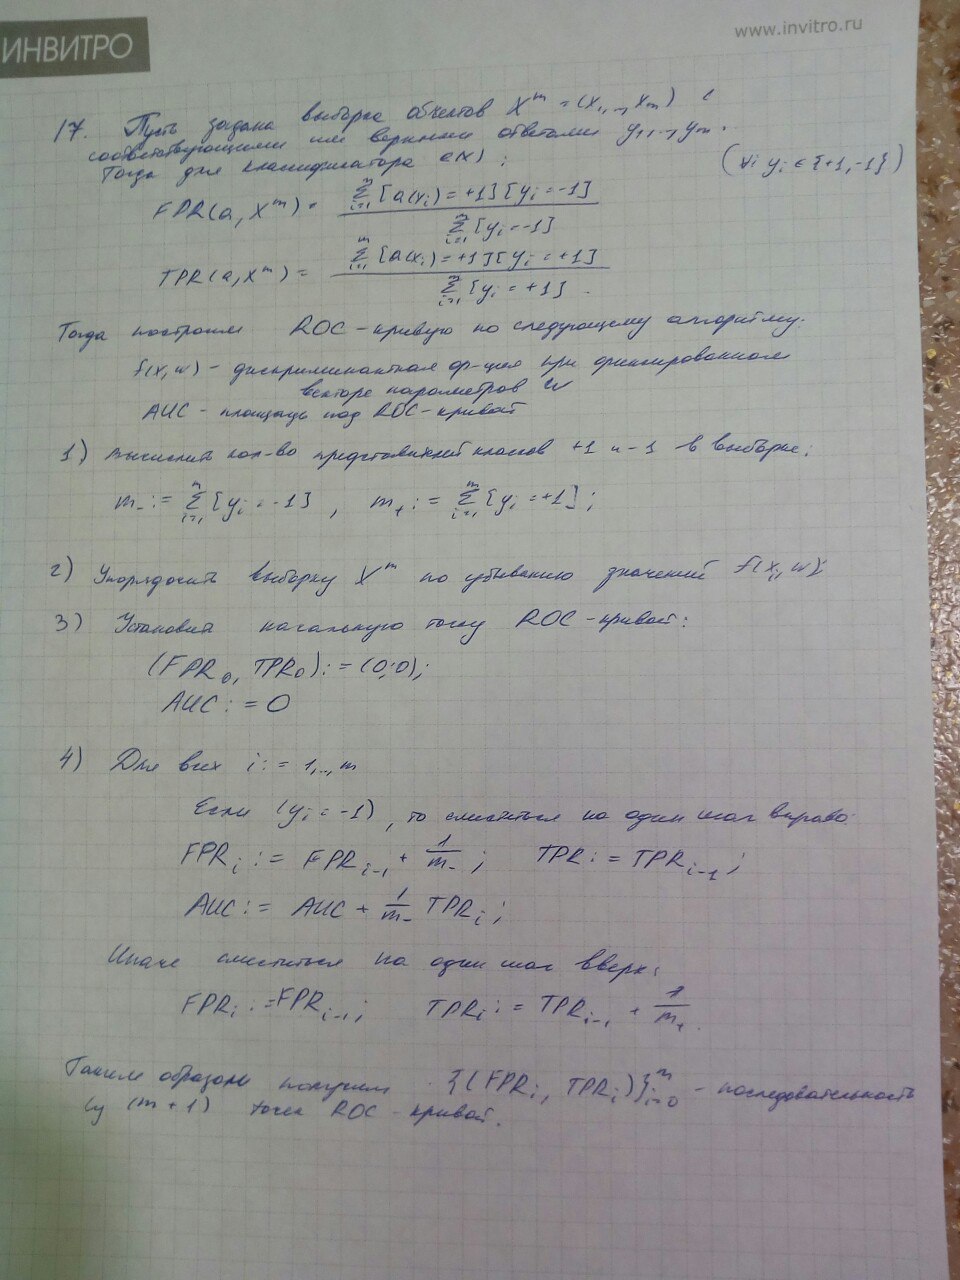 ИНВИТРО
www.invitro.ru
17. Пусть задана выборка объектов X^m = (x_1, .., x_m) с
соответствующими им верными ответами y_1, .., y_m.
(∀i y_i ∈ {+1, -1})
Тогда для классификатора a(x):
FPR(a, X^m) = \frac{\sum_{i=1}^{m} [a(x_i) = +1][y_i = -1]}{\sum_{i=1}^{m} [y_i = -1]}
TPR(a, X^m) = \frac{\sum_{i=1}^{m} [a(x_i) = +1][y_i = +1]}{\sum_{i=1}^{m} [y_i = +1]}.
Тогда построим ROC-кривую по следующему алгоритму:
f(x, w) - дискриминантная ф-ция при фиксированном
векторе параметров w
AUC - площадь под ROC-кривой
1) Вычислить кол-во представителей классов +1 и -1 в выборке:
m_- := \sum_{i=1}^{m} [y_i = -1], m_+ := \sum_{i=1}^{m} [y_i = +1];
2) Упорядочить выборку X^m по убыванию значений f(x_i, w);
3) Установить начальную точку ROC-кривой:
(FPR_0, TPR_0) := (0; 0);
AUC := 0
4) Для всех i := 1, .., m
Если (y_i = -1), то сместиться на один шаг вправо:
FPR_i := FPR_{i-1} + \frac{1}{m_-}; TPR_i := TPR_{i-1};
AUC := AUC + \frac{1}{m_-} TPR_i;
Иначе сместиться на один шаг вверх:
FPR_i := FPR_{i-1}; TPR_i := TPR_{i-1} + \frac{1}{m_+}.
Таким образом получим {(FPR_i, TPR_i)}_{i=0}^{m} - последовательность
из (m+1) точек ROC-кривой.